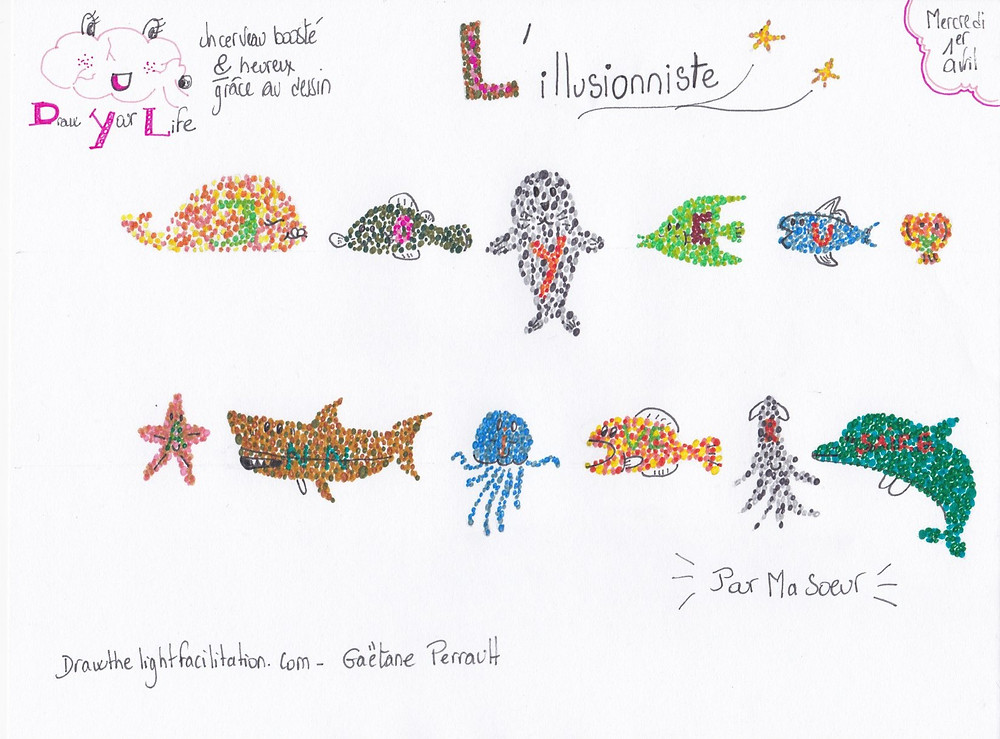 un cerveau boosté
& heureux
grâce au dessin
Draw Your Life
L'illusionniste
Mercredi
1er
avril
J O Y E U
A NN I R SAIRE
Par Ma Soeur
Drawthelightfacilitation.com - Gaëtane Perrault